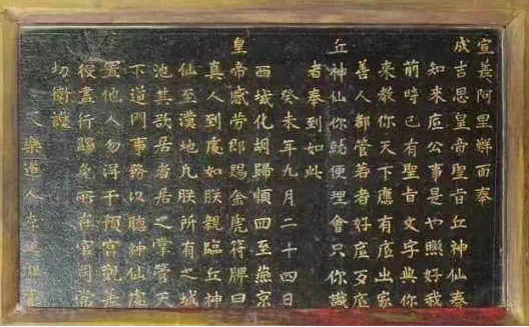 宣差阿里鮮面奉
成吉思皇帝聖旨丘神仙奏
知來底公事是也煞好我
前時已有聖旨文字與你
來教你天下應有底出家
善人都管著者好底歹底
丘神仙你就便理會只你識
者奉到如此
癸未年九月二十四日
西域化胡歸順回至燕京
皇帝感勞即賜金虎符牌曰
真人到處如朕親臨丘神
仙至漢地凡朕所有之城
池其欲居者居之掌管天
下道門事務以聽神仙處
置他人勿得干預宮觀差
役盡行蠲免所在官司常
切衛護
天樂道人李道謙書